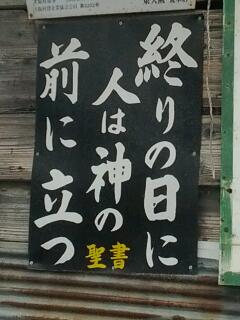 終りの日に
人は神の
前に立つ
聖書